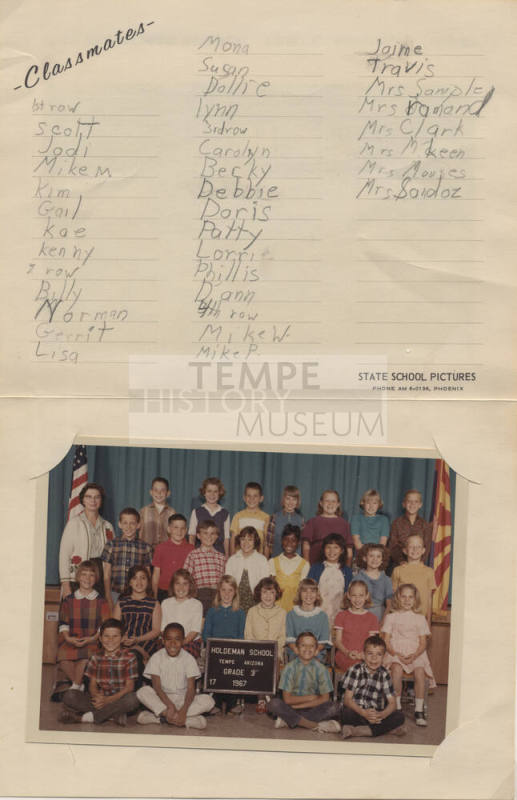 -Classmates-
1st row
Scott
Jodi
Mike M
Kim
Gail
Kae
kenny
2 row
Billy
Norman
Gerrit
Lisa
Mona
Susan
Dollie
lynn
3rd row
Carolyn
Becky
Debbie
Doris
Patty
Lorrie
Phillis
Diann
4th row
Mike W.
Mike P.
Jaime
Travis
Mrs Sample
Mrs
Mrs Clark
Mrs McKeen
Mrs
Mrs. Sandoz
STATE SCHOOL PICTURES
PHONE AM 6-0196, PHOENIX
TEMPE
HISTORY
MUSEUM
HOLDEMAN SCHOOL
TEMPE ARIZONA
GRADE 3
17 1967